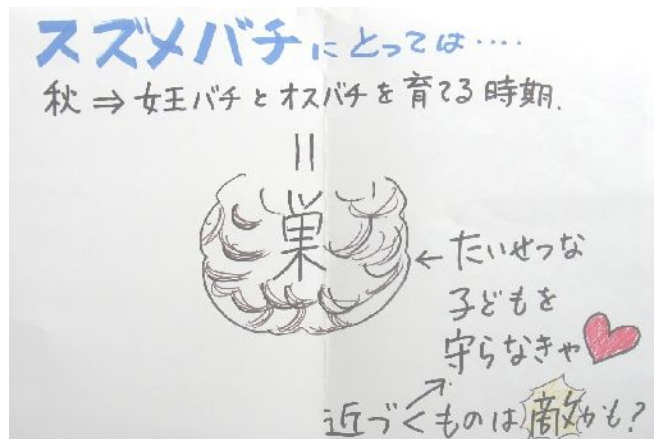 スズメバチにとっては‥‥
秋⇒女王バチとオスバチを育てる時期.
巣
←たいせつな
子どもを
守らなきゃ
近づくものは敵かも?